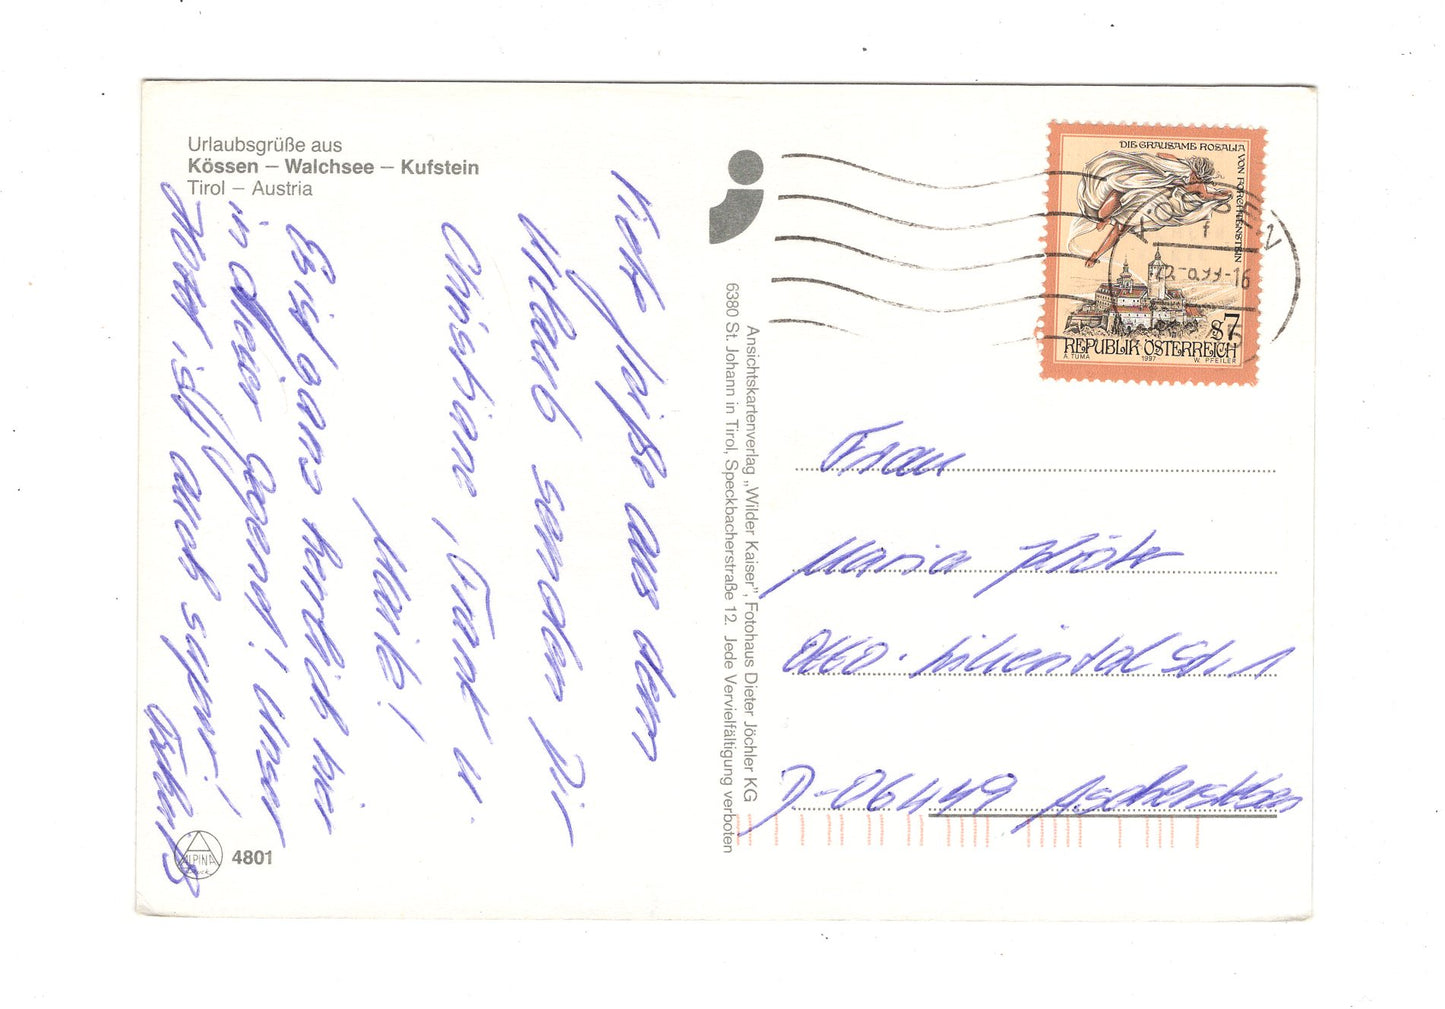 Urlaubsgrüße aus
Kössen – Walchsee – Kufstein
Tirol – Austria
Viele Grüße aus dem
Urlaub senden Dir
Christiane, Frank u.
Maik!
Es ist ganz herrlich hier
in dieser Gegend! Unser
Hotel ist auch super!
ALPINA
4801
Ansichtskartenverlag „Wilder Kaiser", Fotohaus Dieter Jöchler KG
6380 St. Johann in Tirol, Speckbacherstraße 12. Jede Vervielfältigung verboten
DIE GRAUSAME ROSALIA
VON FORCHTENSTEIN
S7
REPUBLIK ÖSTERREICH
A. TUMA 1997 W. PFEILER
KÖSSEN
Frau
Maria
Otto-Lilienthal Str. 1
D-06449 Aschersleben